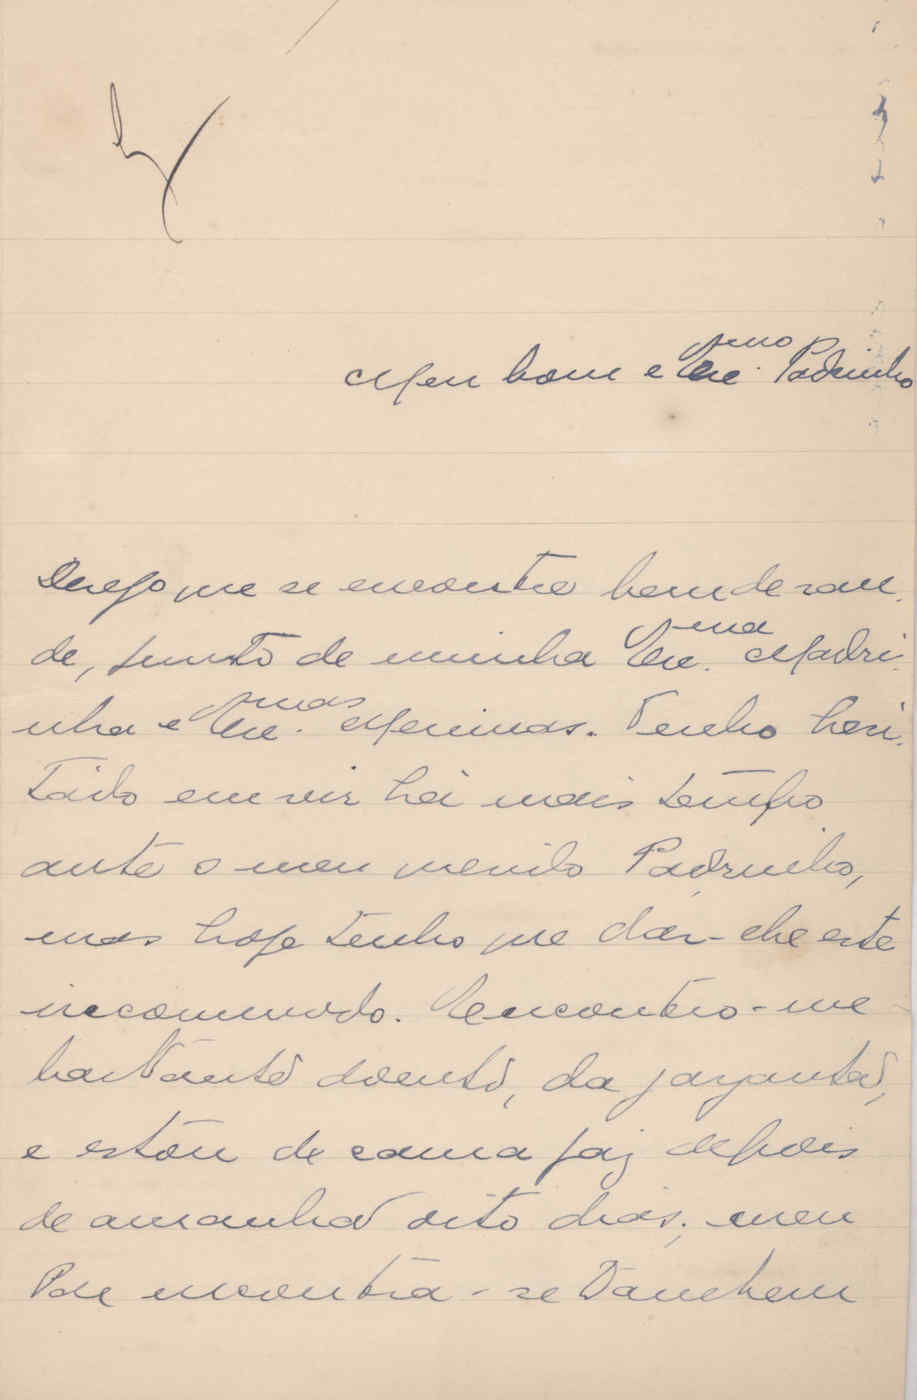 Meu bom e Exmo. Padrinho
Desejo que se encontre bem de sau-
de, junto de minha Exma. Madri-
nha e Exmas. Meninas. Tenho hesi-
tado em vir há mais tempo
ante o meu querido Padrinho,
mas hoje tenho que dar-che este
incommodo. Encontro-me
bastante doente, da garganta,
e estou de cama faz depois
de amanhã oito dias, meu
Pae encontra-se tambem